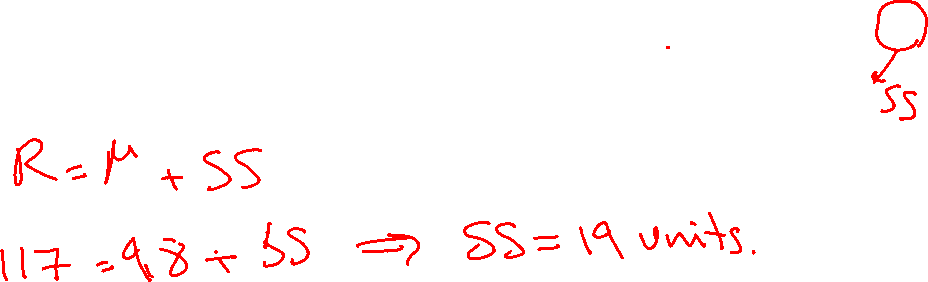 SS
R = μ + SS
117 = 98 + SS ⇒ SS = 19 units.